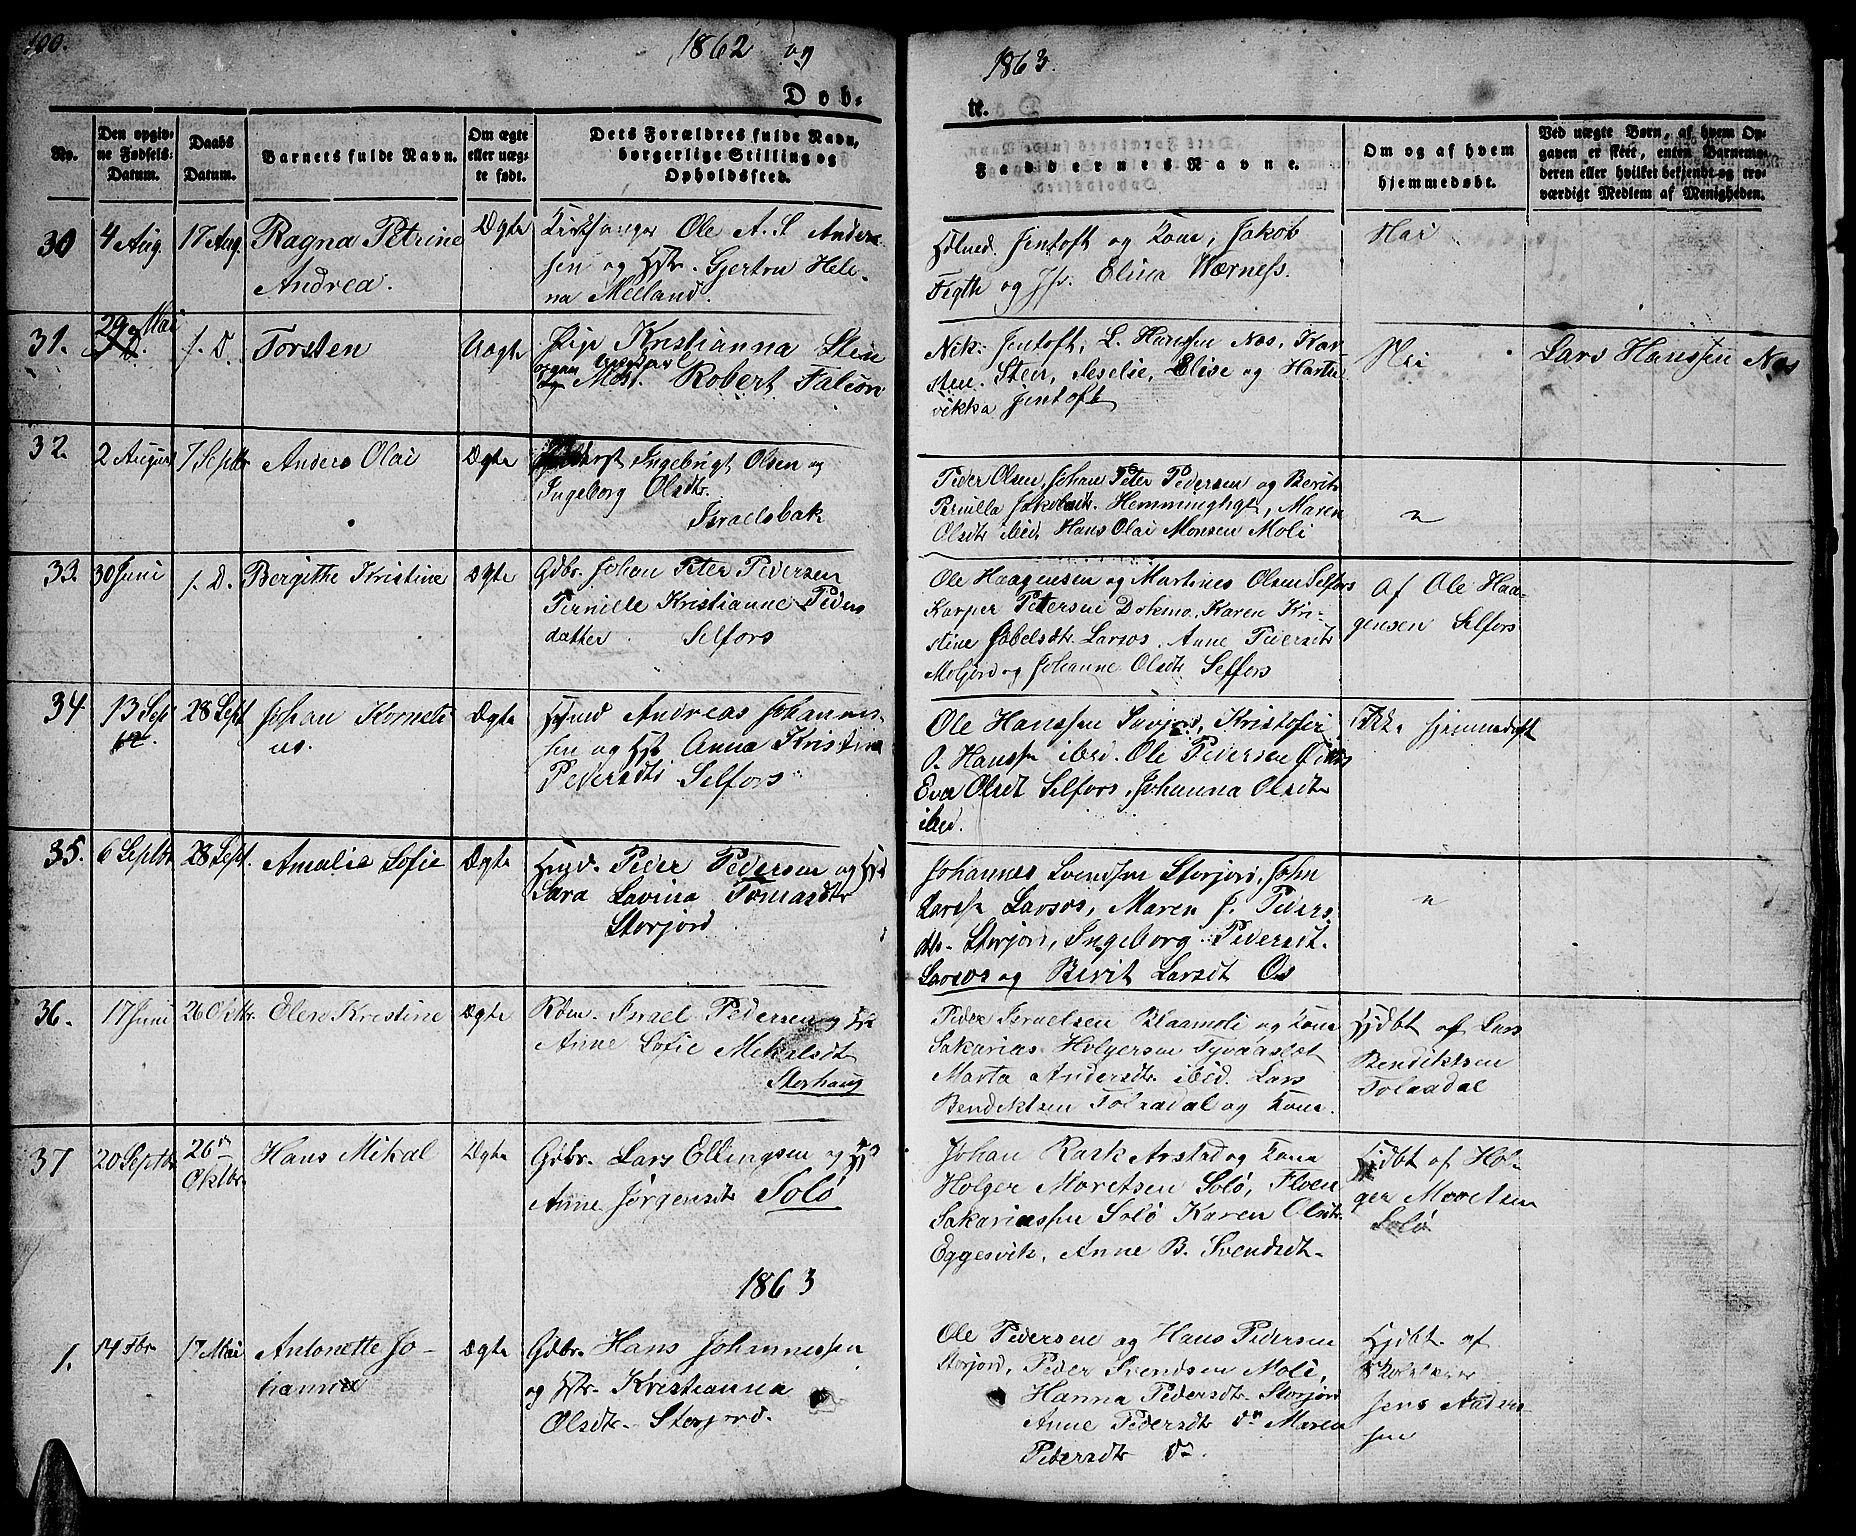 100.
1862 og
1863.
Døb-
te.
No.
Den opgiv-
ne Fødsels-
Datum.
Daabs
Datum.
Barnets fulde Navn.
Om ægte
eller uæg-
te født.
Dets Forældres fulde Navn,
borgerlige Stilling og
Opholdssted.
Faddernes Navne.
Om og af hvem
hjemmedøbt.
Ved uægte Børn, af hvem Op-
gaven er skeet, enten Barnemo-
deren eller hvilket bekjendt og tro-
værdigt Medlem af Menigheden.
30
4 Aug.
17 Aug.
Ragna Petrine
Andrea.
Ægte
Kirksanger Ole A. S. Ander-
sen og Hstr. Gjertru Hele-
na Meeland.
Jentoft og Kone, Jakob
Fygth og Jfr. Elina Værness.
Nei
31.
29 Mai
f. D.
Torsten
Uægte
Pige Kristianna Sten
Robert Falcon
Nik: Jentoft, L. Hanssen Næs, Kar-
sten Sten, Elise og Hart-
vikka Jentoft
Nei
Lars Hanssen Næs
32.
2 August
7 Septbr
Anders Olai
Ægte
Ingebrigt Olsen og
Ingeborg Olsdtr.
Israelsbak
Peder Olsen, Johan Peter Pedersen og Berit
Pernilla Jakobsdtr. Hemminghyt, Maren
Olsdtr ibid. Hans Olai Monsen Moli
"
33.
30 Juni
f. D.
Bergithe Kristine
Ægte
Gdbr. Johan Peter Pedersen
Pernille Kristianne Peders
datter Selfors
Ole Haagensen og Martines Olsen Selfors
Kasper Petersen Dokmo, Karen Kri-
stine Jakobsdtr. Larsos, Anne Pedersdtr
Moljord og Johanne Olsdtr Selfors
Af Ole Haa-
gensen Selfors
34
13 Sept
12.
28 Sept
Johan Korneli
us.
Ægte
Hsmd Andreas Johannes-
sen og Hst Anna Kristina
Pedersdtr Selfors
Ole Hanssen Kristofer
O. Hanssen ibid. Ole Pedersen
Eva Olsdt Selfors, Johanna Olsdtr
ibid.
Ikke hjemmedøbt
35.
6 Septbr
28 Sept.
Amalie Sofie
Ægte
Hsmd. Peder Pedersen og Hst
Sara Lavina Tomasdtr
Storjord
Johannes Svendsen Storjord, John
Larsen Larsos, Maren J. Peders
dtr. Storjord, Ingeborg Pedersdt.
Larsos og Berit Larsdt Os
"
36.
17 Juni
26 Oktbr.
Elen Kristine
Ægte
Rdm. Israel Pedersen og Hst
Anne Sofie Mikalsdt
Storhaug
Peder Israelsen Blaamoli og Kone
Sakarias Holgersen Tyvaaslet
Marta Andersdtr. ibid. Lars
Bendiktsen Tolaadal og Kone.
Hjdbt af Lars
Bendiktsen
Tolaadal
37
20 Septbr
26de
Oktbr.
Hans Mikal
Ægte
Gdbr. Lars Ellingsen og Hst
Anne Jørgensdtr Solø
Johan Rask Arstad og Kone
Holger Moretsen Solø, Floen
Sakariassen Solø Karen Olsdtr.
Eggesvik, Anne B. Svendsdt-
Hjdbt af Hol-
ger Moretsen
Solø
1863
1.
14 Fbr
17 Mai
Antonette Jo-
hanna
Ægte
Gdbr. Hans Johannessen
og Hstr. Kristianna
Olsdtr. Storjord.
Ole Pedersen og Hans Pedersen
Storjord, Peder Svendsen Moli,
Hanna Pedersdtr Storjord
Anne Pedersdtr do Maren
Pedersdtr do.
Hjdbt af
Skolelærer
Jens Anders-
sen